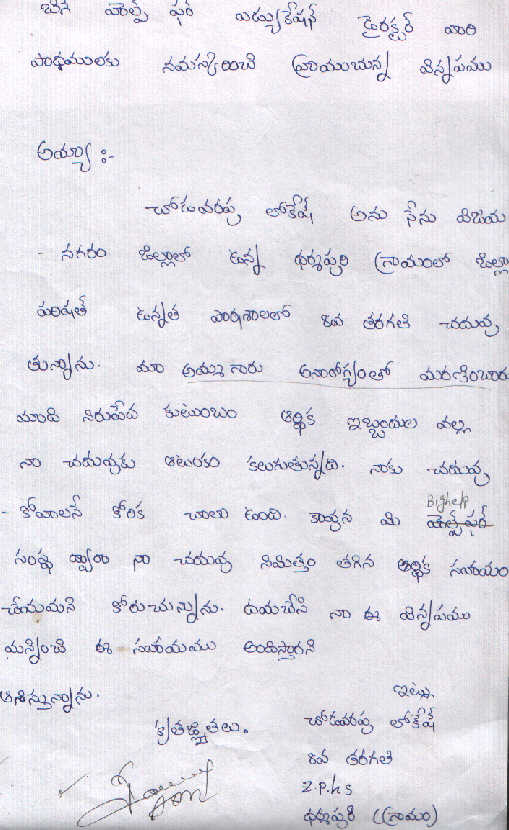 బిగ్ హెల్ప్ ఫర్ ఎడ్యుకేషన్ డైరక్టర్ వారి
పాధములకు నమస్కరించి వ్రాయుచున్న విన్నపము
అయ్యా :-
చోడువరపు లోకేష్ అను నేను విజయ
- నగరం జిల్లాలో ఉన్న ధర్మపురి గ్రామంలో జిల్లా
పరిషత్ ఉన్నత పాఠశాలలో 8వ తరగతి చదువు
తున్నాను. మా అమ్మ గారు అనారోగ్యంతో మరణించారు
మాది నిరుపేద కుటుంబం ఆర్థిక ఇబ్బందుల వల్ల
నా చదువుకు ఆటంకం కలుగుతున్నది. నాకు చదువు
- కోవాలనే కోరిక చాలా ఉంది. కావున మీ Bighelp
సంస్థ ద్వారా నా చదువు నిమిత్తం తగిన ఆర్థిక సహాయం
చేయమని కోరుచున్నాను. దయచేసి నా ఈ విన్నపము
మన్నించి ఈ సహాయము అందిస్తారని
ఆశిస్తున్నాను.
ఇట్లు,
కృతజ్ఞతలు.
చోడవరపు లోకేష్
8వ తరగతి
Z.P.h.s
ధర్మపురి (గ్రామం)